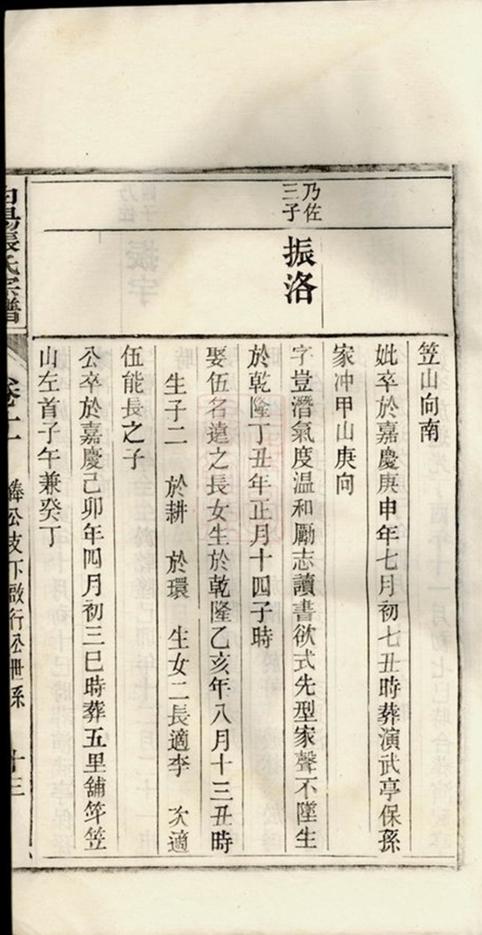 笠山向南
妣卒於嘉慶庚申年七月初七丑時葬演武亭保孫
家冲甲山庚向
乃佐
三子
振洛
字豈潛氣度温和勵志讀書欲式先型家聲不墜生
於乾隆丁丑年正月十四子時
娶伍名遠之長女生於乾隆乙亥年八月十三丑時
生子二 於耕 於環 生女二長適李 次適
伍能長之子
公卒於嘉慶己卯年四月初三巳時葬五里舖笠
山左首子午兼癸丁
張氏宗譜 卷十二 公支下啟行公世系 十三